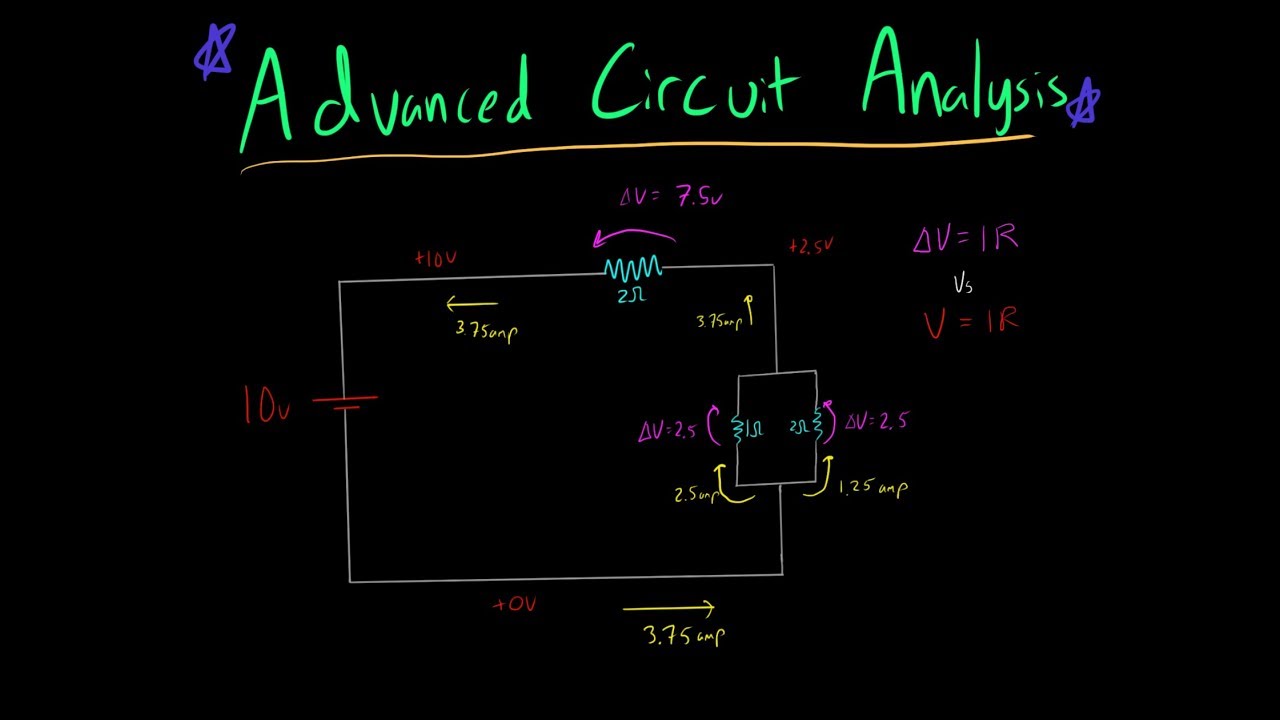 Advanced Circuit Analysis
ΔV = 7.5v
+10V
+2.5V
ΔV = IR
2Ω
Vs
3.75amp
3.75amp
V = IR
10v
ΔV=2.5
1Ω
2Ω
ΔV=2.5
2.5amp
1.25amp
+0V
3.75amp